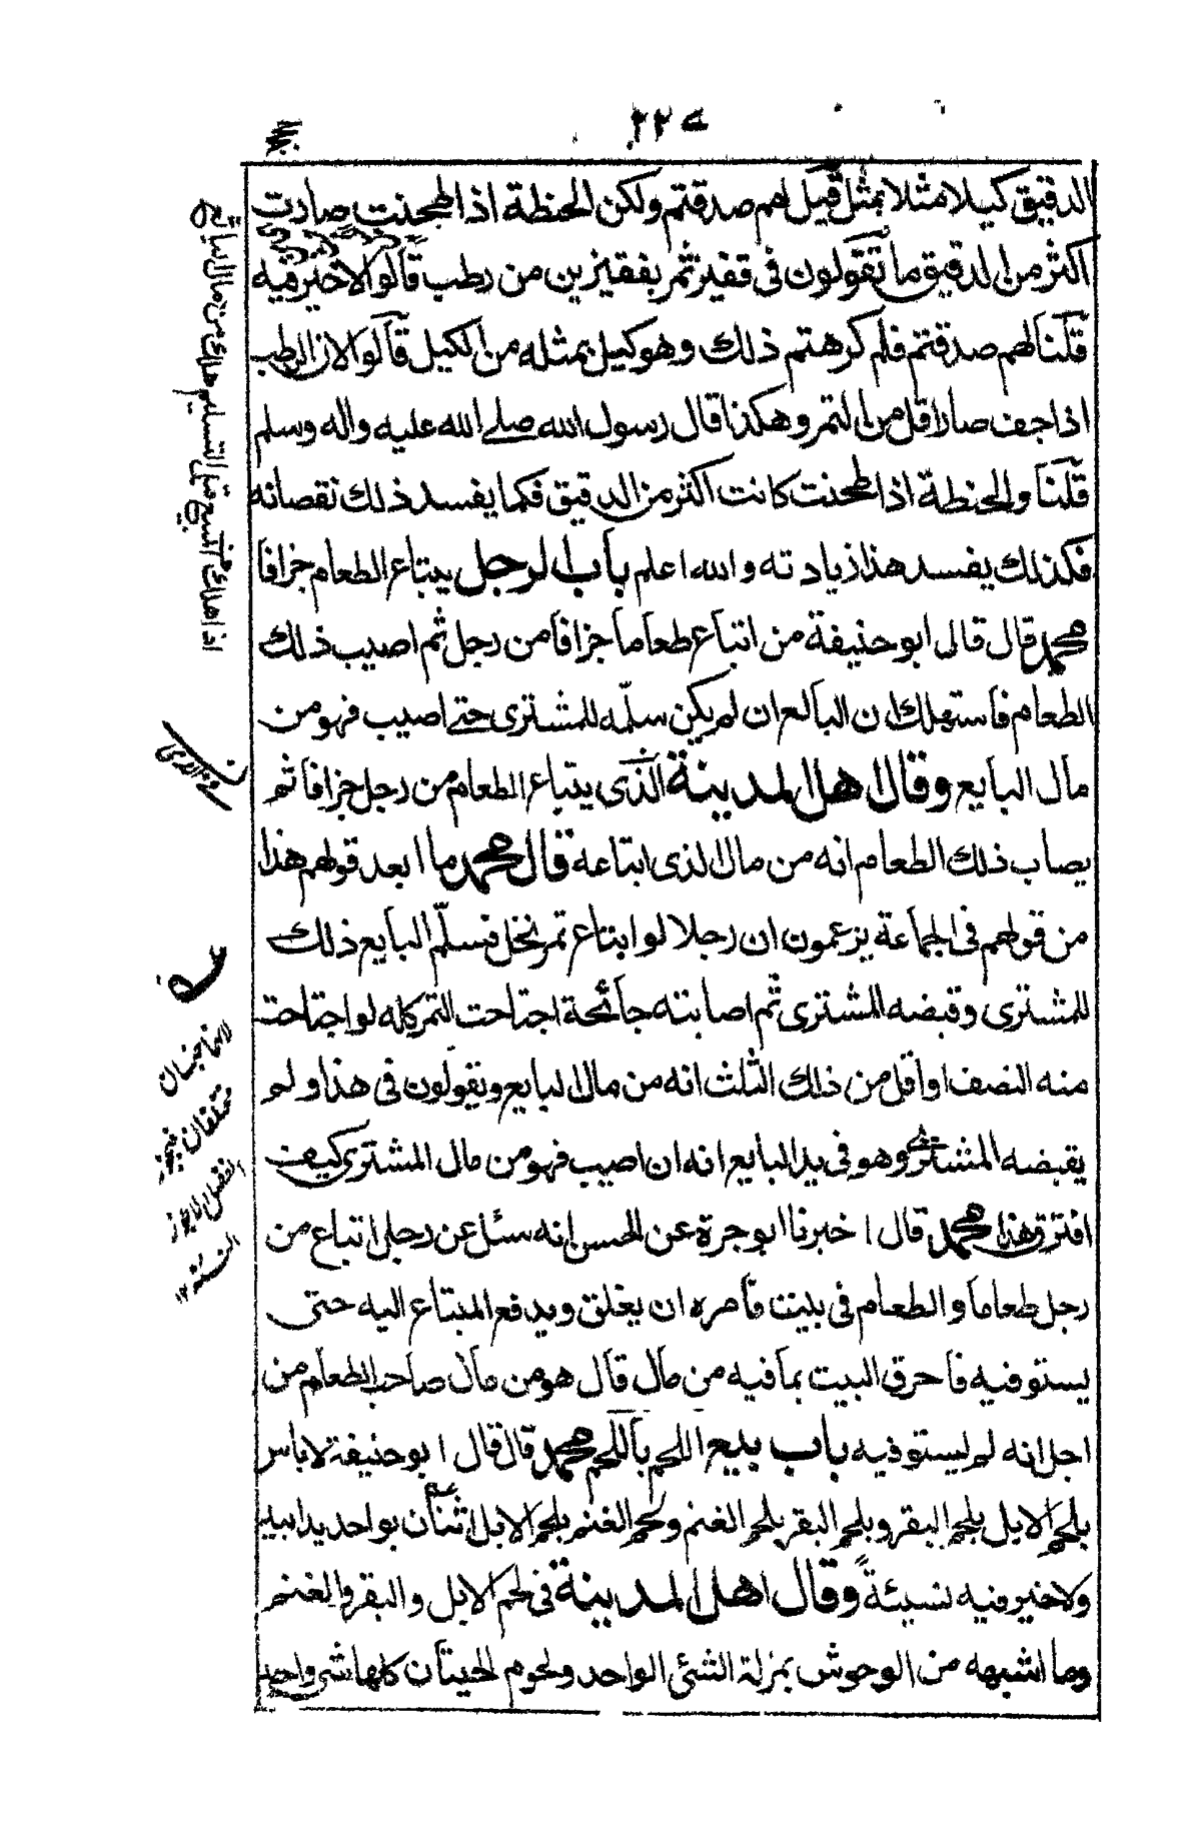 ٢٢٤
الدقيق كيلا مثلا بمثل قيل لهم صدقتم ولكن الحنطة اذا طحنت صارت
اكثر من الدقيق ما تقولون فى قفيز تمر بقفيزين من رطب قالوا لا خير فيه
قلنا لهم صدقتم فلم كرهتم ذلك وهو كيل بمثله من الكيل قالوا لان الرطب
اذا جف صار اقل من التمر وهكذا قال رسول الله صلے الله عليه واله وسلم
قلنا والحنطة اذا طحنت كانت اكثر من الدقيق فكما يفسد ذلك نقصانه
فكذلك يفسد هذا زيادته والله اعلم باب الرجل يبتاع الطعام جزافا
محمد قال قال ابو حنيفة من ابتاع طعاما جزافا من رجل ثم اصيب ذلك
الطعام فاستهلك ان البائع ان لم يكن سلّمه للمشترى حتے اصيب فهو من
مال البايع وقال اهل المدينة الذى يبتاع الطعام من رجل جزافا ثم
يصاب ذلك الطعام انه من مال الذى ابتاعه قال محمد ما ابعد قولهم هذا
من قولهم فى الجماعة يزعمون ان رجلا لو ابتاع تمر نخل فسلّم البايع ذلك
للمشترى وقبضه المشترى ثم اصابته جائحة اجتاحت التمر كله لو اجتاحت
منه النصف او اقل من ذلك الثلث انه من مال البايع ويقولون فى هذا ولم
يقبضه المشترے وهو فى يد البايع انه ان اصيب فهو من مال المشترى كيف
افترق هذا محمد قال اخبرنا ابو حرة عن الحسن انه سئل عن رجل ابتاع من
رجل طعاما والطعام فى بيت فامره ان يغلق ويدفع المبتاع اليه حتى
يستوفيه فاحرق البيت بما فيه من مال قال هو من مال صاحب الطعام من
اجل انه لم يستوفيه باب بيع اللحم باللحم محمد قال قال ابو حنيفة لا باس
بلحم الابل بلحم البقر وبلحم البقر بلحم الغنم ولحم الغنم بلحم الابل اثنان بواحد يدا بيد
ولا خير فيه نسيئةً وقال اهل المدينة فى لحم الابل والبقر والغنم
وما اشبهه من الوحوش بمنزلة الشئى الواحد ولحوم الحيتان كلها شى واحد
اذا هلك المبيع قبل التسليم هلك من مال البائع